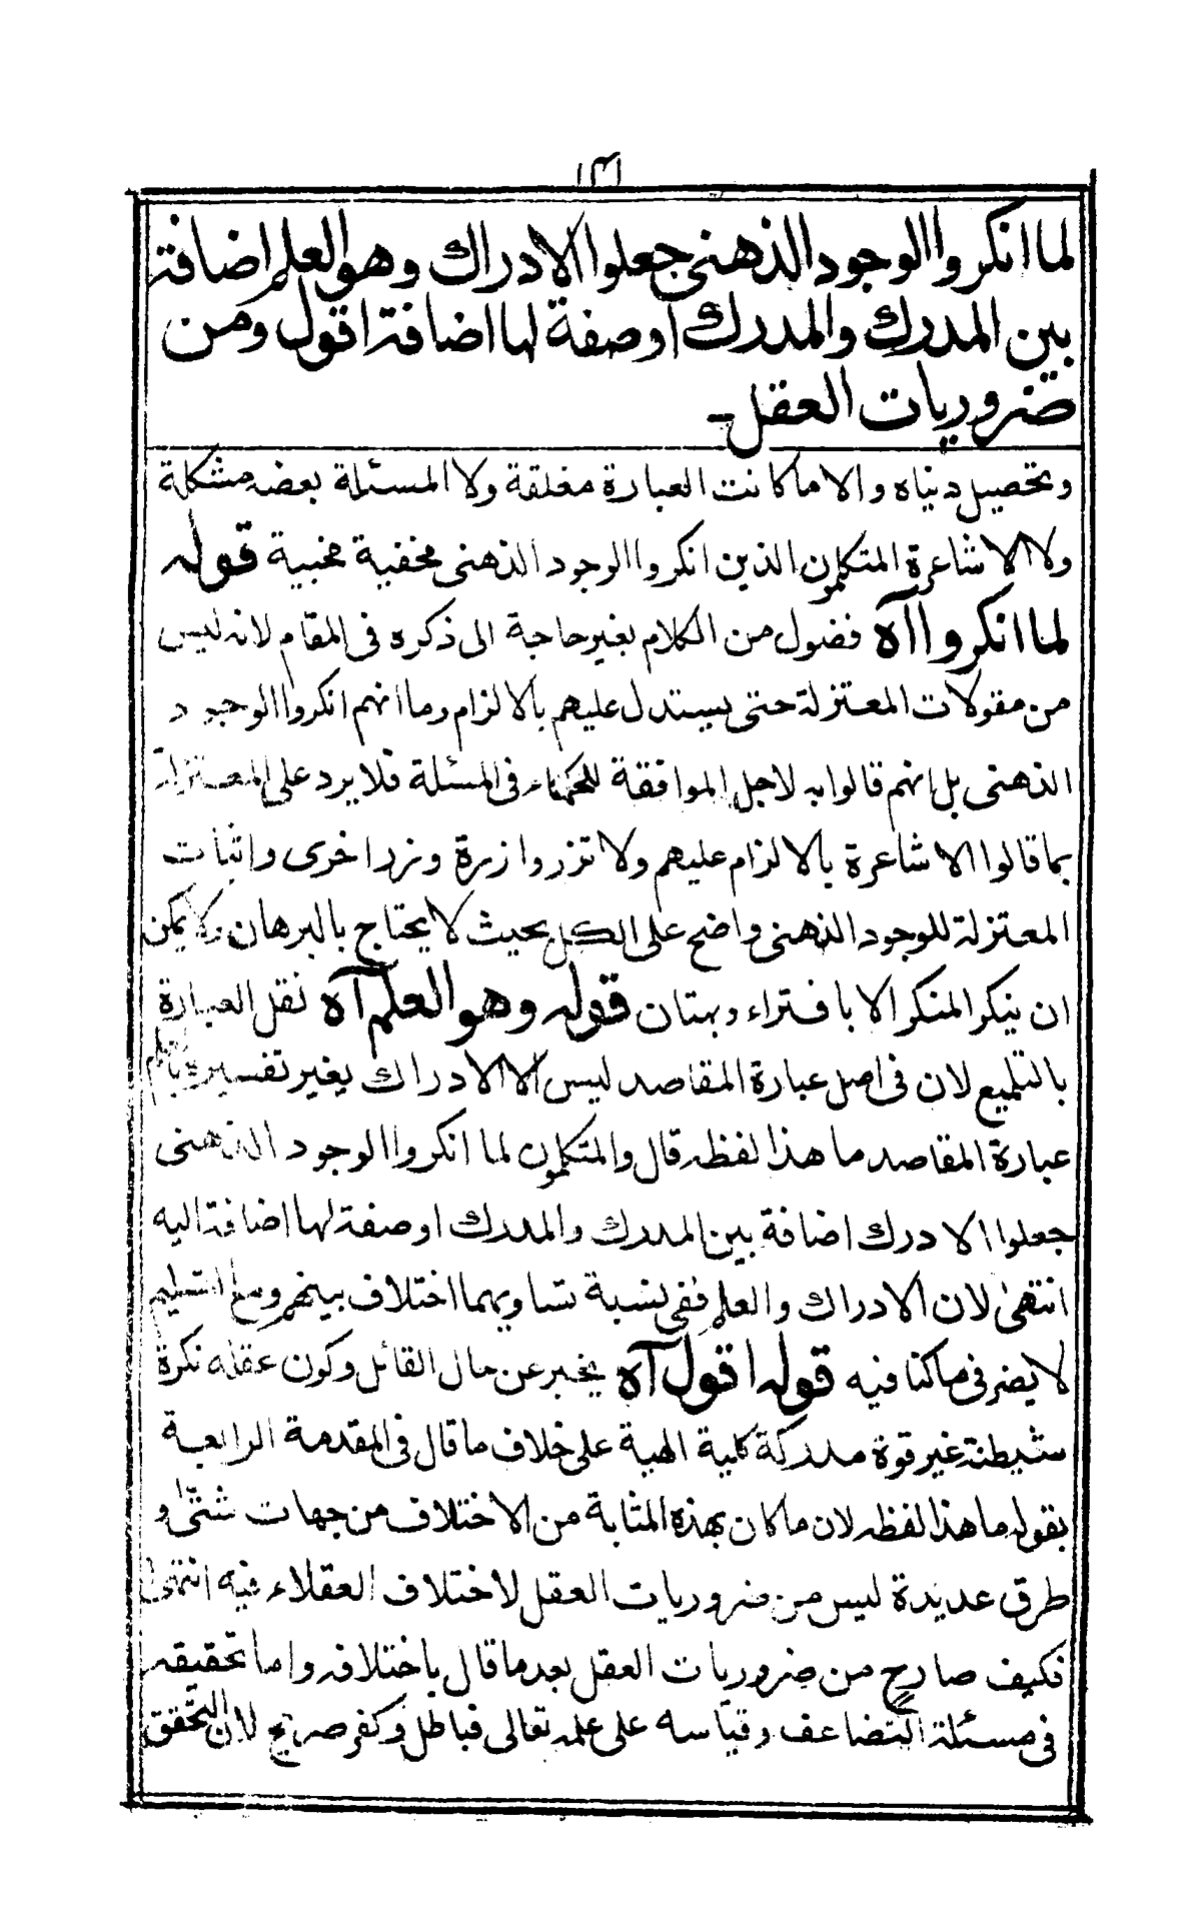 ١٣١
لما انكروا الوجود الذهنى جعلوا الادراك وهو العلم اضافة
بين المدرك والمدرك اوصفة لها اضافة اقول ومن
ضروريات العقل۔
وتحصيل دنياه والا ما كانت العبارة مغلقة ولا المسئلة بعضه مشكلة
ولا الاشاعرة المتكلمون الذين انكروا الوجود الذهنى مخفية مخبية قوله
لما انكروا آه فضول من الكلام بغير حاجة الى ذكره فى المقام لانه ليس
من مقولات المعتزلة حتى يستدل عليهم بالالزام وما انهم انكروا الوجود
الذهنى بل انهم قالوا به لاجل الموافقة للحكماء فى المسئلة فلا يرد على المعتزلة
بما قالوا الاشاعرة بالالزام عليهم ولا تزر وازرة وزر اخرى واثبات
المعتزلة للوجود الذهنى واضح على الكل بحيث لا يحتاج بالبرهان ولا يمكن
ان ينكر المنكر الا بافتراء وبهتان قوله وهو العلم آه نقل العبارة
بالتلميع لان فى اصل عبارة المقاصد ليس الا الادراك بغير تفسيره
عبارة المقاصد ما هذا لفظه قال والمتكلمون لما انكروا الوجود الذهنى
جعلوا الادرك اضافة بين المدرك والمدرك اوصفة لها اضافة اليه
انتهى لان الادراك والعلم ففى نسبة تساويهما اختلاف بينهم ومع التسليم
لا يضر فى ما كنا فيه قوله اقول آه يخبر عن حال القائل وكون عقله نكرة
شيطنة غير قوة مدركة كلية الهية على خلاف ما قال فى المقدمة الرابعة
بقوله ما هذا لفظه لان ما كان بهذه المثابة من الاختلاف من جهات شتى و
طرق عديدة ليس من ضروريات العقل لاختلاف العقلاء فيه انتهى
فكيف صارح من ضروريات العقل بعد ما قال باختلافه واما تحقيقه
فى مسئلة التضاعف وقياسه على علمه تعالى فباطل وكفر صريح لان التحقق